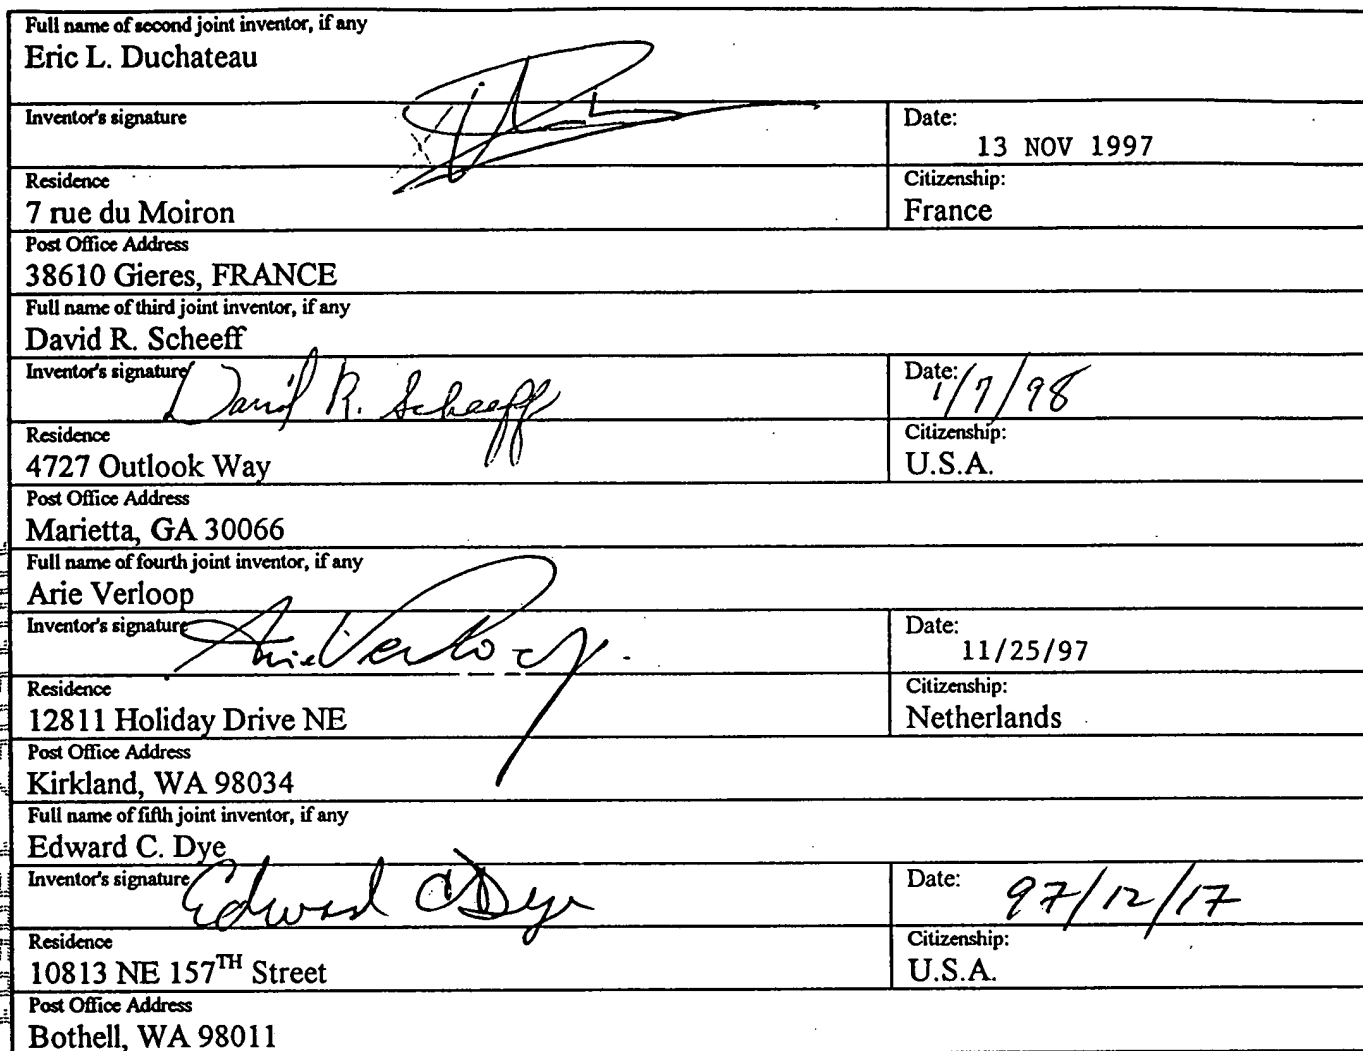 Full name of second joint inventor, if any
Eric L. Duchateau
Inventor's signature
Date:
13 NOV 1997
Residence
7 rue du Moiron
Citizenship:
France
Post Office Address
38610 Gieres, FRANCE
Full name of third joint inventor, if any
David R. Scheeff
Inventor's signature
David R. Scheeff
Date:
1/7/98
Residence
4727 Outlook Way
Citizenship:
U.S.A.
Post Office Address
Marietta, GA 30066
Full name of fourth joint inventor, if any
Arie Verloop
Inventor's signature
Arie Verloop
Date:
11/25/97
Residence
12811 Holiday Drive NE
Citizenship:
Netherlands
Post Office Address
Kirkland, WA 98034
Full name of fifth joint inventor, if any
Edward C. Dye
Inventor's signature
Edward C Dye
Date:
97/12/17
Residence
10813 NE 157TH Street
Citizenship:
U.S.A.
Post Office Address
Bothell, WA 98011